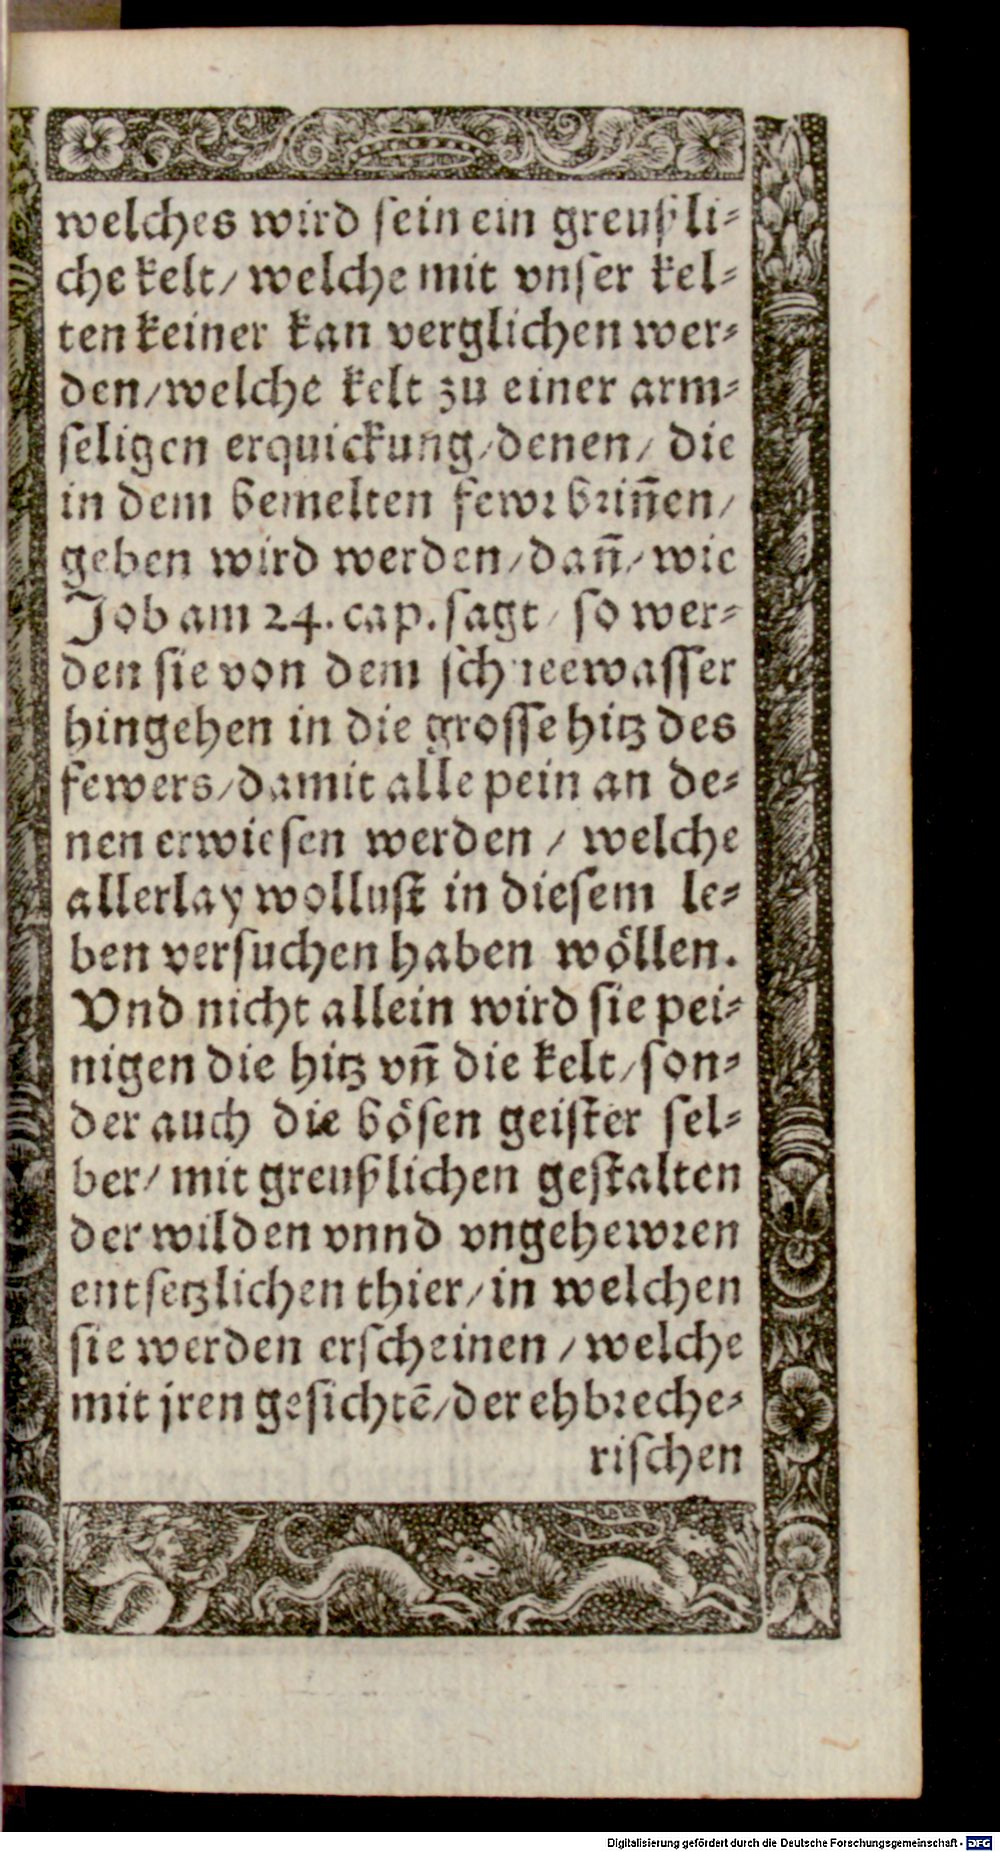 welches wird sein ein greußli⸗
che kelt/ welche mit vnser kel⸗
ten keiner kan verglichen wer⸗
den/welche kelt zu einer arm⸗
seligen erquickung/denen/ die
in dem bemelten fewr briñen/
geben wird werden/dañ/ wie
Job am 24. cap. sagt/ so wer⸗
den sie von dem schneewasser
hingehen in die grosse hitz des
fewers/damit alle pein an de⸗
nen erwiesen werden / welche
allerlay wollust in diesem le⸗
ben versuchen haben wöllen.
Vnd nicht allein wird sie pei⸗
nigen die hitz vñ die kelt/son⸗
der auch die bösen geister sel⸗
ber/ mit greußlichen gestalten
der wilden vnnd vngehewren
entsetzlichen thier/in welchen
sie werden erscheinen / welche
mit jren gesichtē/der ehbreche⸗
rischen
Digitalisierung gefördert durch die Deutsche Forschungsgemeinschaft - DFG